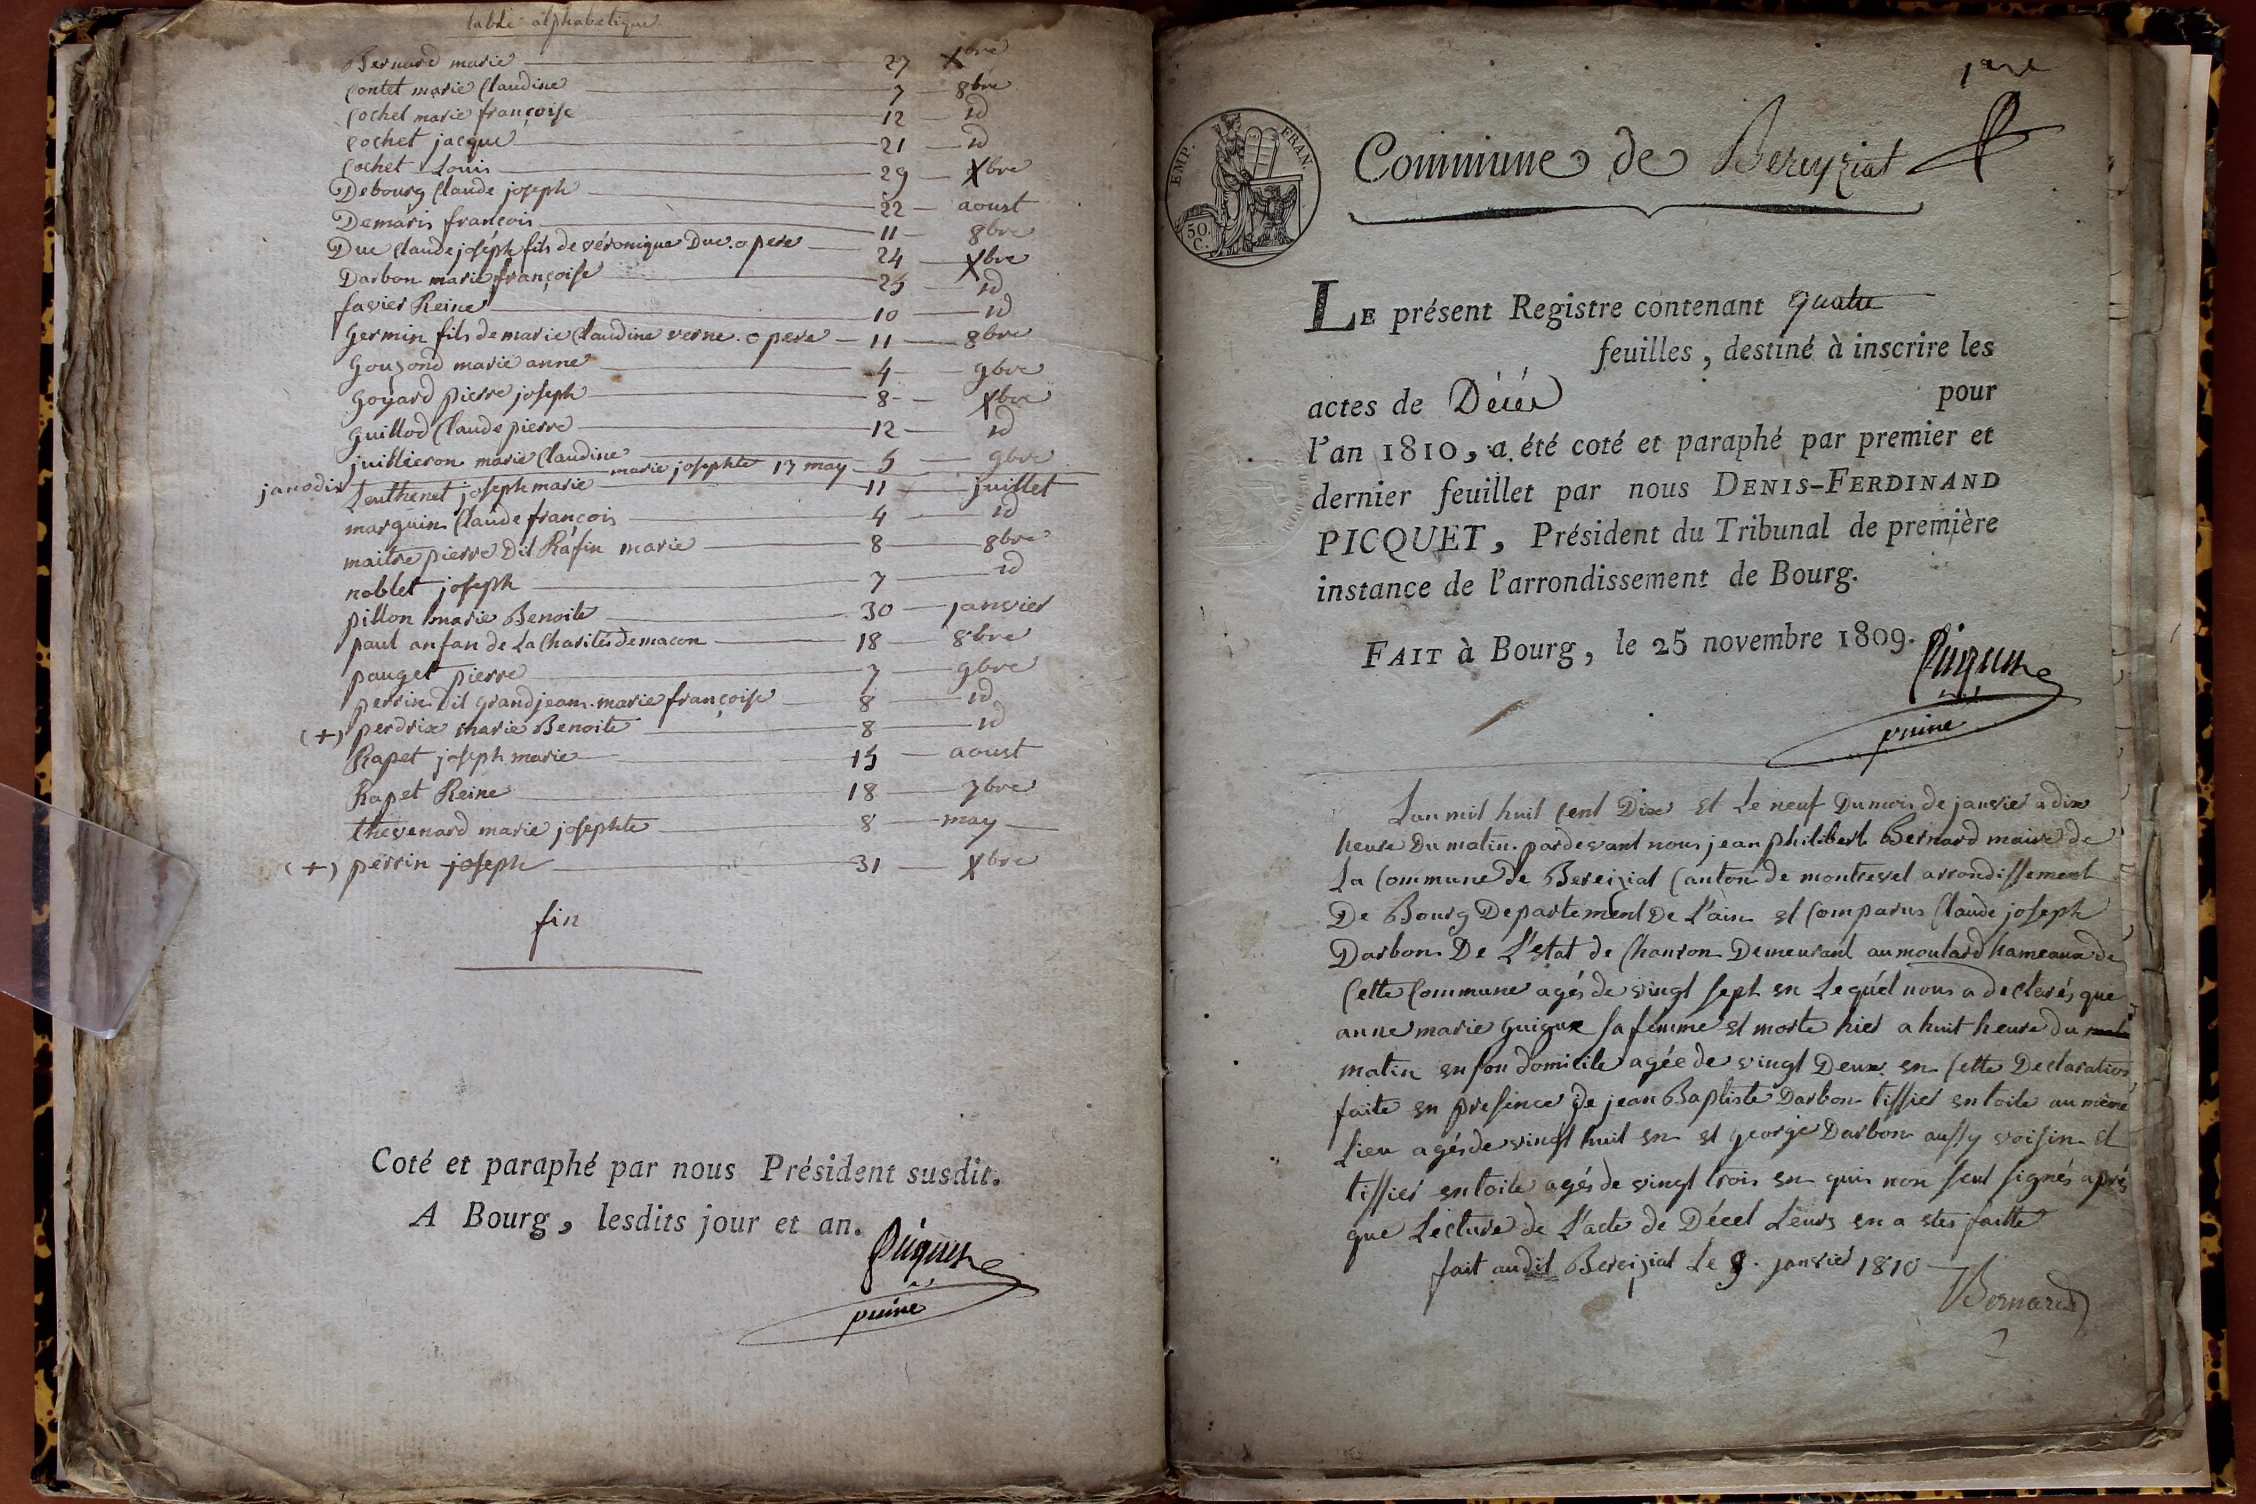 table alphabetique
Bernard marie 27 Xbre
Contet marie Claudine 7 8bre
Cochet marie françoise 12 id
Cochet jacque 21 id
Cochet Louis 29 Xbre
Debourg Claude joseph 22 aoust
Demaris françois 11 8bre
Duc Claude joséph fils de véronique Duc. o pere 24 Xbre
Darbon marie françoise 25 id
favier Reine 10 id
Germin fils de marie Claudine verne. o pere 11 8bre
Gouzond marie anne 4 9bre
Goyard pierre joseph 8 Xbre
Guillod Claude pierre 12 id
juillieron marie Claudine 5 9bre
janodix marie josephte 17 may
Leuthenet joseph marie 11 juillet
marguin Claude françois 4 id
maitre pierre Dit Rafin marie 8 8bre
noblet joseph 7 id
pillon marie Benoite 30 janvier
paul anfan de La Charités de macon 18 8bre
pauget pierre 7 9bre
perrin Dit grandjean. marie françoise 8 id
(+) perdrix marie Benoite 8 id
Rapet joseph marie 15 aoust
Rapet Reine 18 7bre
thevenard marie josephte 8 may
(+) perrin joseph 31 Xbre
fin
Coté et paraphé par nous Président susdit.
A Bourg, lesdits jour et an.
Picquet
puiné
1ere
EMP. FRAN.
50. C.
Commune de Bereyziat
LE présent Registre contenant quatre
feuilles, destiné à inscrire les
actes de Décés pour
l'an 1810, a été coté et paraphé par premier et
dernier feuillet par nous DENIS-FERDINAND
PICQUET, Président du Tribunal de première
instance de l'arrondissement de Bourg.
FAIT à Bourg, le 25 novembre 1809.
Picquet
puiné
Lan mil huit Cent Dix et Le neuf Du mois de janvier a dix
heure Du matin. pardevant nous jean philibert Bernard maire de
La Commune de Bereiziat Canton de montrevel arrondissement
De Bourg Departement De L'ain et Comparus Claude joseph
Darbon De L'Estat de Charron Demeurant au moulard hameaux de
Cette Commune agés de vingt sept en Lequél nous a declarés que
anne marie Guigue sa femme et morte hier a huit heure du
matin en son domicile agée de vingt Deux en Cette Declaration
faite en presence de jean Baptiste Darbon tissier en toile au même
Lieu agés de vingt huit en et george Darbon aussy voisin et
tissier en toile agés de vingt trois en quis non seut signés aprés
que Lecture de L'acte de Décet Leurs en a etés faitte
fait audit Bereiziat Le 9. janvier 1810
Bernard